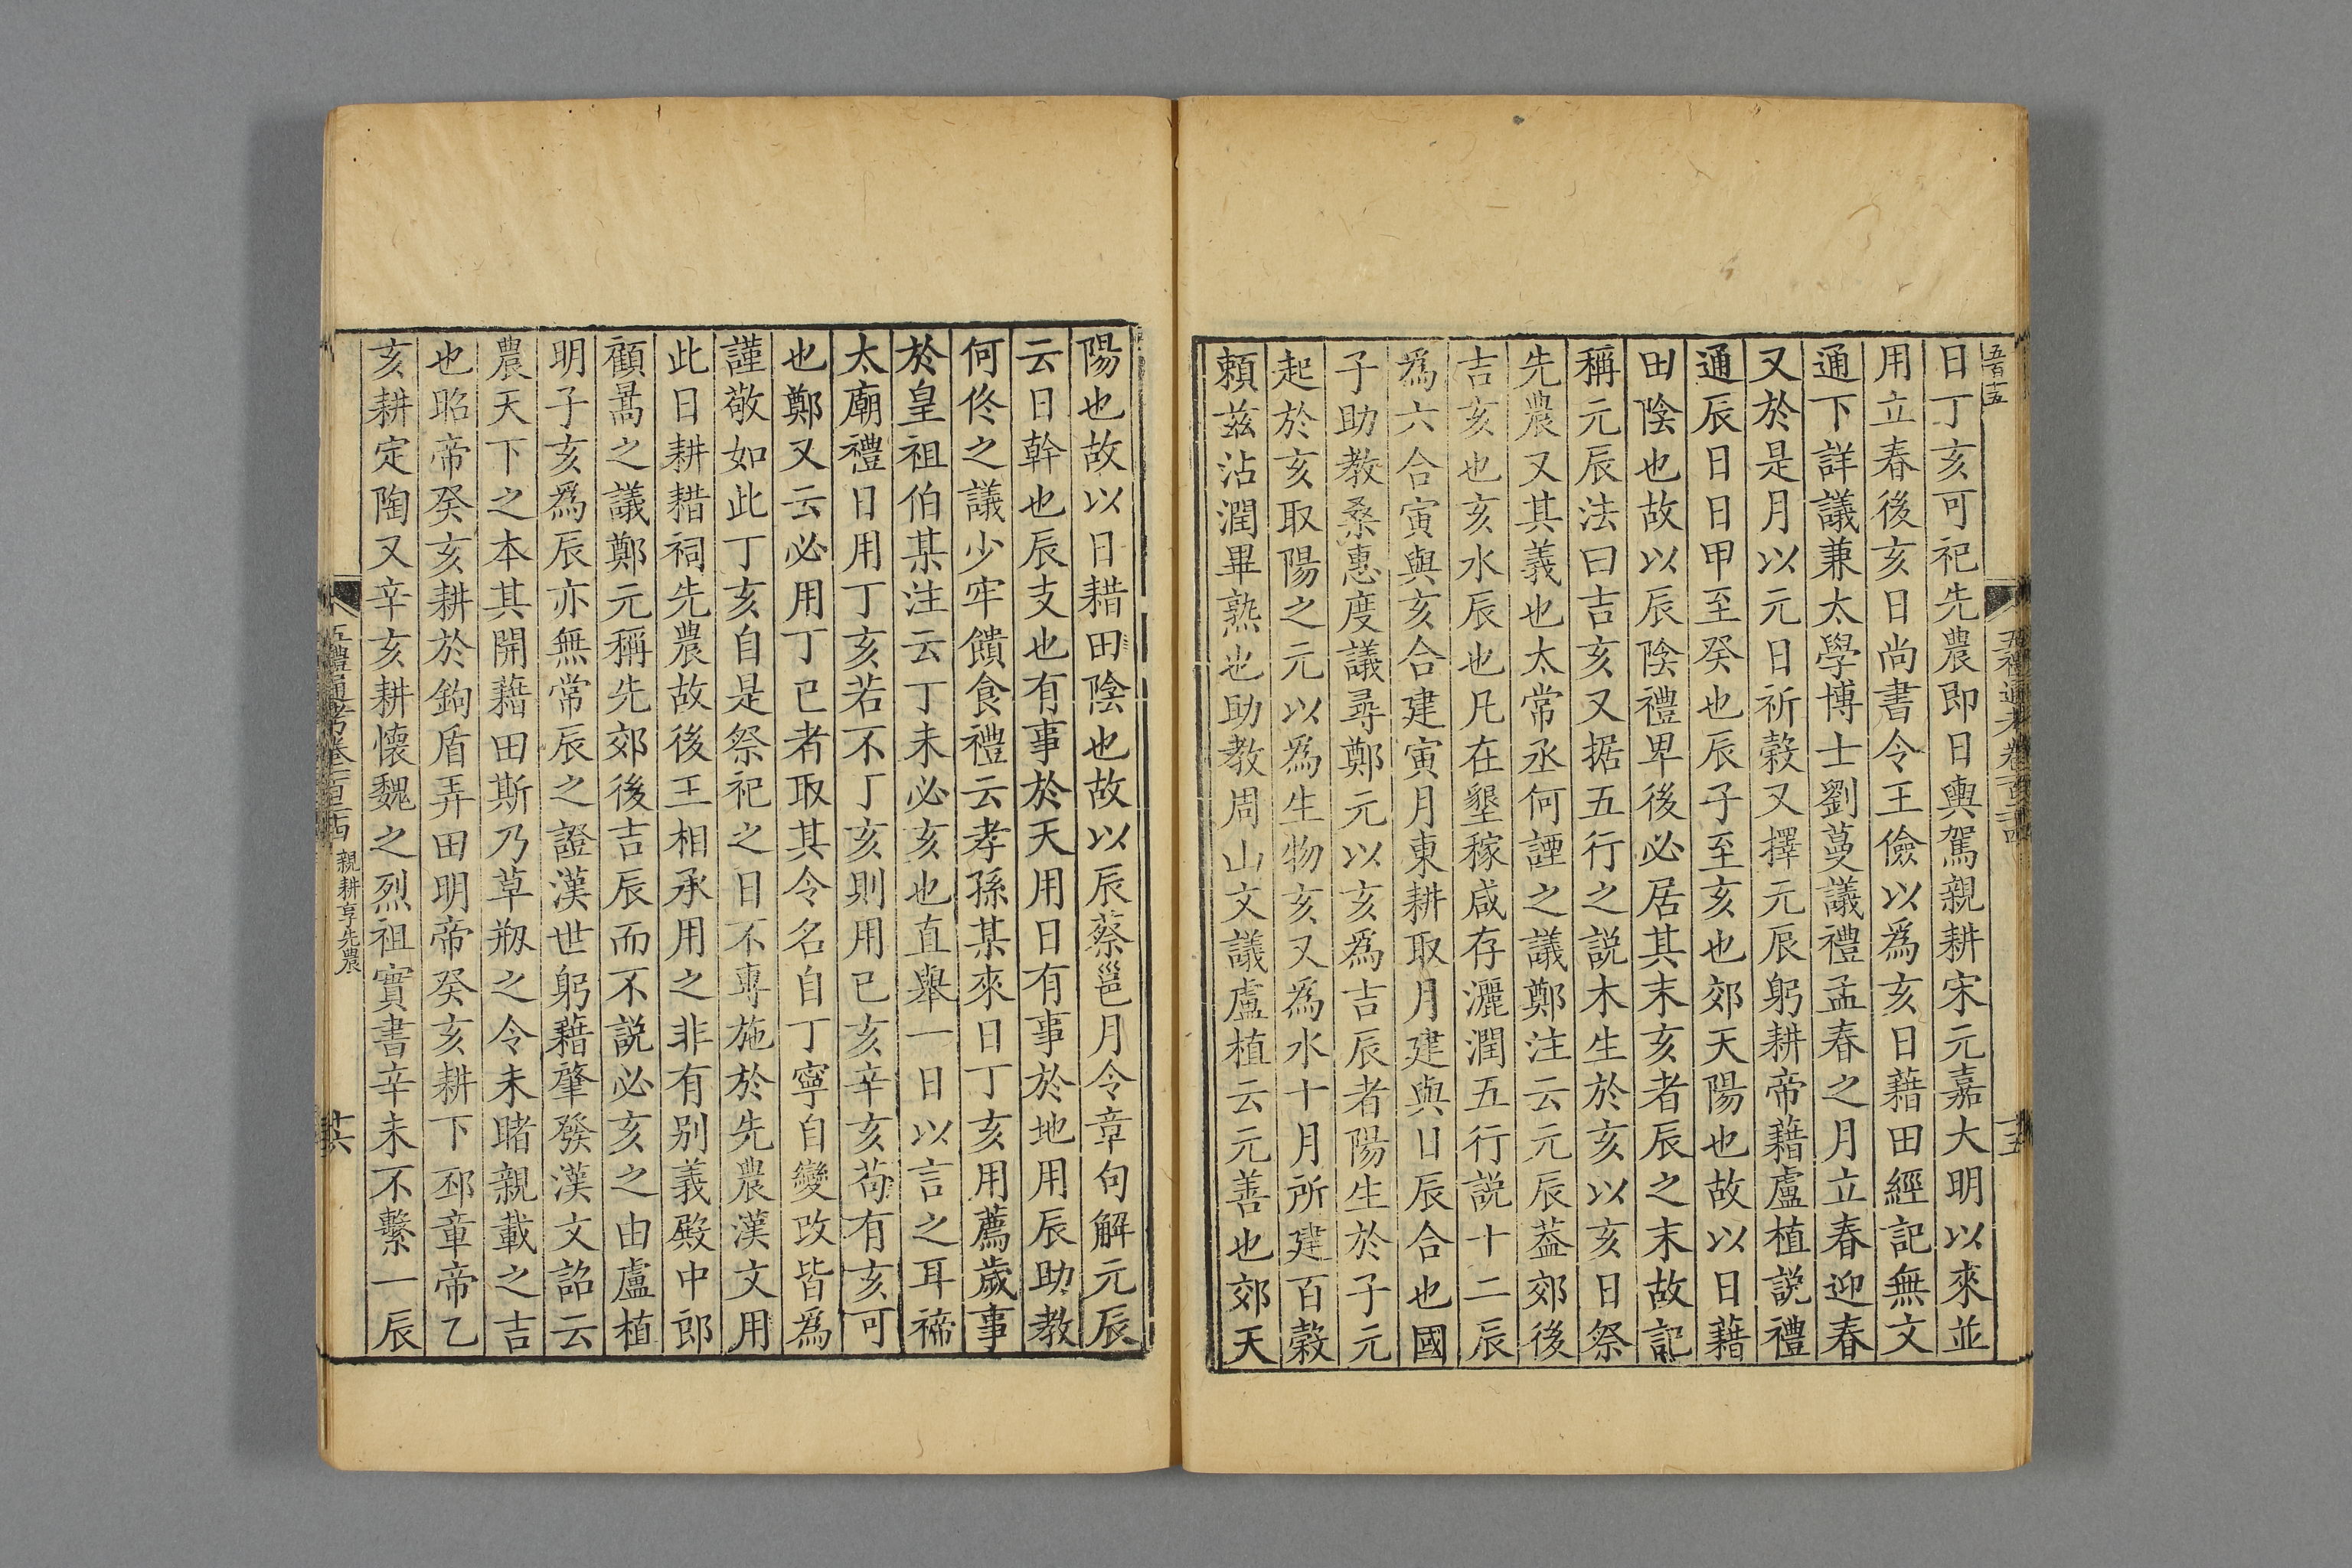 五百十五
五禮通考卷一百二十四
十五
日丁亥可祀先農即日輿駕親耕宋元嘉大明以來並
用立春後亥日尚書令王儉以爲亥日藉田經記無文
通下詳議兼太學博士劉蔓議禮孟春之月立春迎春
又於是月以元日祈榖又擇元辰躬耕帝藉盧植説禮
通辰日日甲至癸也辰子至亥也郊天陽也故以日藉
田陰也故以辰陰禮卑後必居其末亥者辰之末故記
稱元辰法曰吉亥又据五行之説木生於亥以亥日祭
先農又其義也太常丞何諲之議鄭注云元辰葢郊後
吉亥也亥水辰也凡在墾稼咸存灑潤五行説十二辰
爲六合寅與亥合建寅月東耕取月建與日辰合也國
子助教桑惠度議尋鄭元以亥爲吉辰者陽生於子元
起於亥取陽之元以爲生物亥又爲水十月所建百榖
頼兹沾潤畢熟也助教周山文議盧植云元善也郊天
陽也故以日耤田陰也故以辰蔡邕月令章句解元辰
云日幹也辰支也有事於天用日有事於地用辰助教
何佟之議少牢饋食禮云孝孫某來日丁亥用薦歲事
於皇祖伯某注云丁未必亥也直舉一日以言之耳禘
太廟禮日用丁亥若不丁亥則用已亥辛亥苟有亥可
也鄭又云必用丁巳者取其令名自丁寧自變改皆爲
謹敬如此丁亥自是祭祀之日不專施於先農漢文用
此日耕耤祠先農故後王相承用之非有别義殿中郎
顧暠之議鄭元稱先郊後吉辰而不説必亥之由盧植
明子亥爲辰亦無常辰之證漢世躬藉肇發漢文詔云
農天下之本其開藉田斯乃草剏之令未睹親載之吉
也昭帝癸亥耕於鉤盾弄田明帝癸亥耕下邳章帝乙
亥耕定陶又辛亥耕懐魏之烈祖實書辛未不繫一辰
五禮通考卷一百二十四 親耕享先農
十六